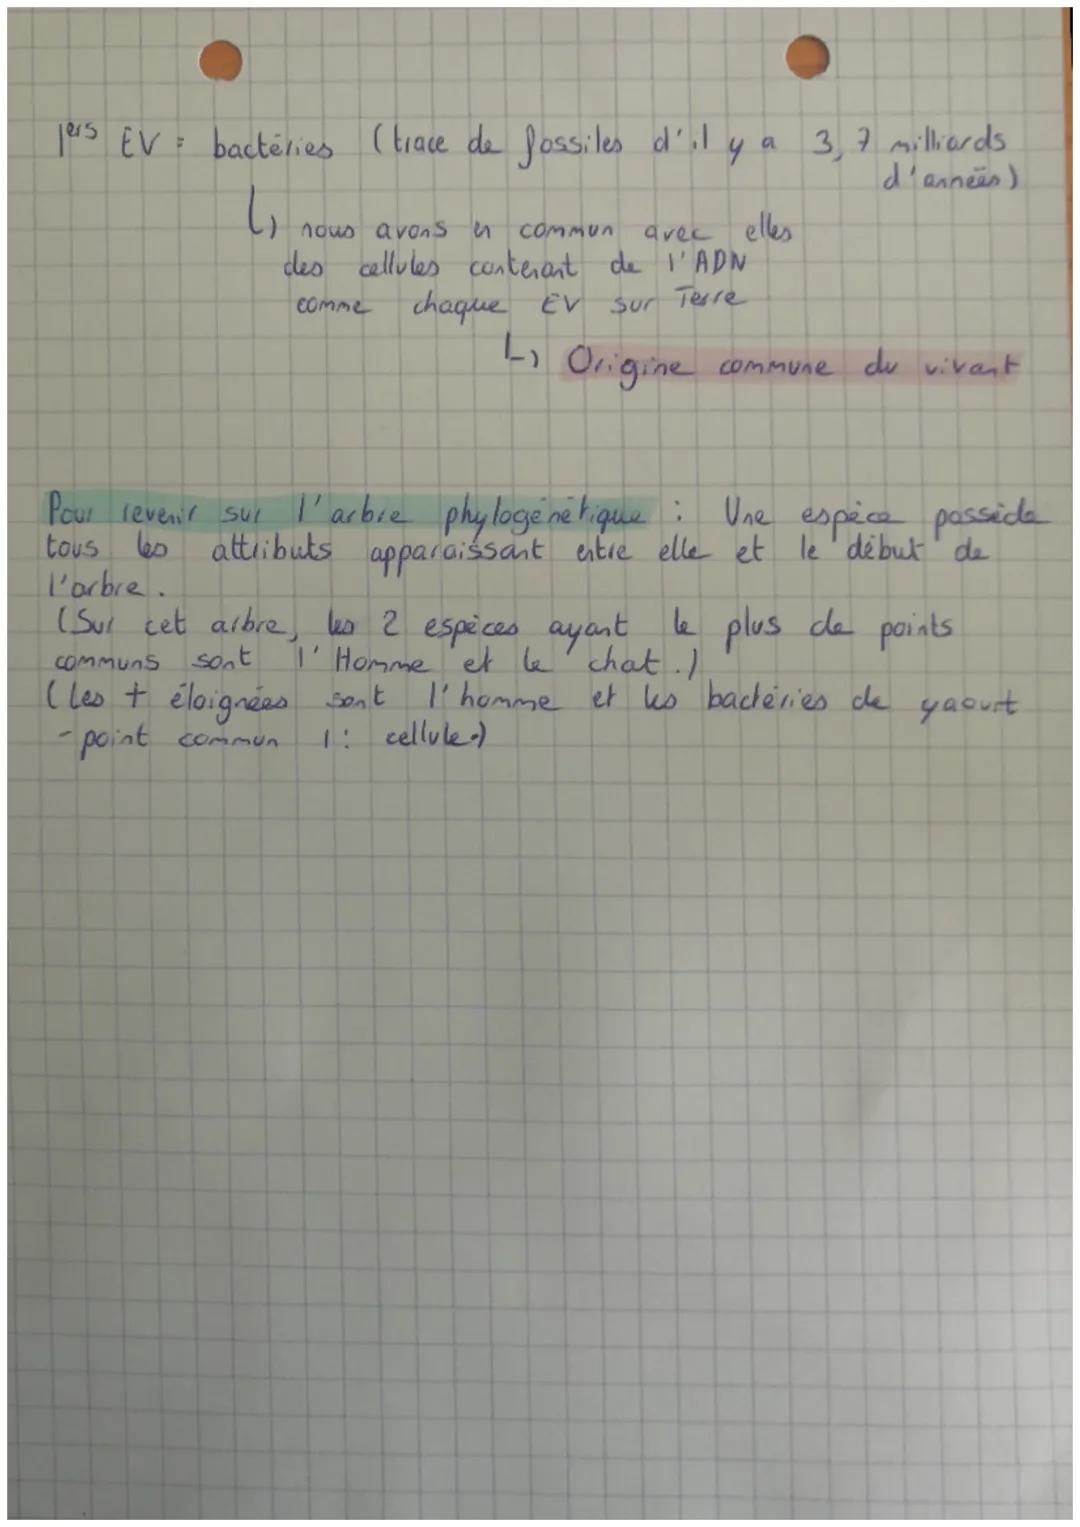 1ers EV = bactéries (trace de fossiles d'il y a 3,7 milliards
d'années)
↳ nous avons en commun avec elles
des cellules contenant de l'ADN
comme chaque EV sur Terre
↳ Origine commune du vivant
Pour revenir sur l'arbre phylogénétique : Une espèce possède
tous les attributs apparaissant entre elle et le début de
l'arbre.
(Sur cet arbre, les 2 espèces ayant le plus de points
communs sont l'Homme et le chat.)
(Les + éloignées sont l'homme et les bactéries de yaourt
- point commun 1 : cellule.)